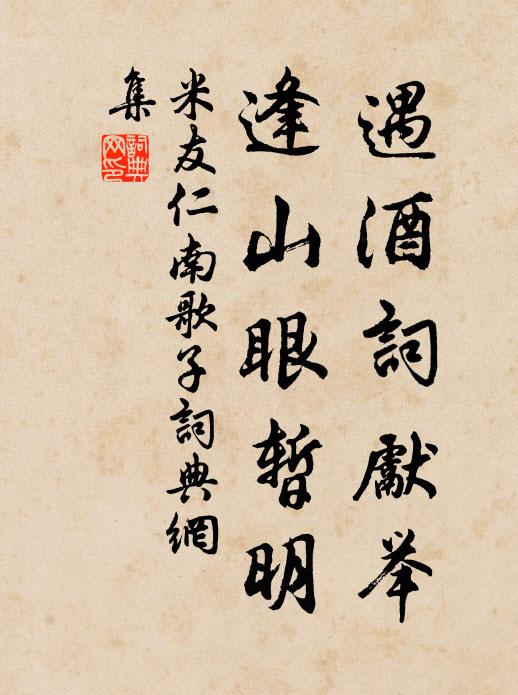 遇酒詞獻举
逢山眼暫明
米友仁南歌子詞典網
集
詞典
网印